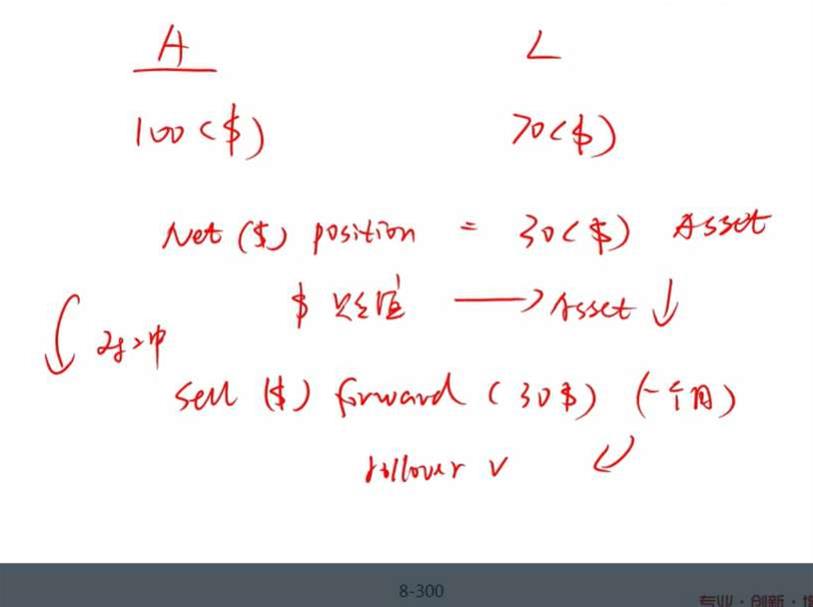 A L
100($) 70($)
Net ($) position = 30($) Asset
$ 贬值 → Asset ↓
对冲
Sell ($) forward (30$) (一个月)
rollover ✓
8-300
专业·创新·增